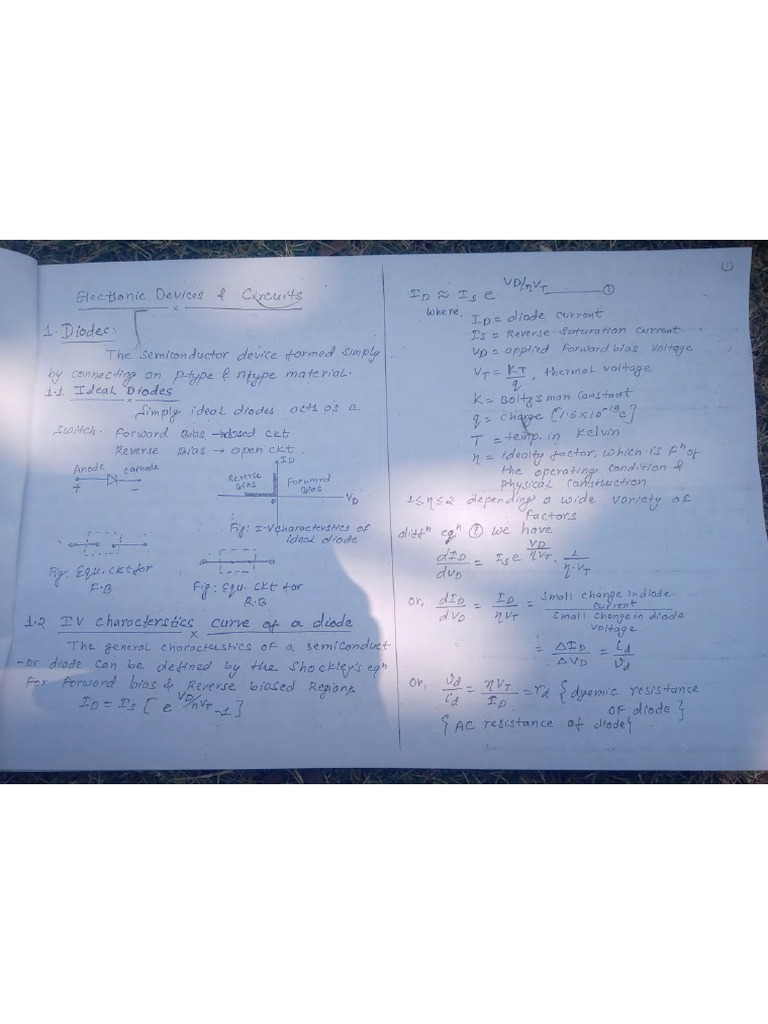 Electronic Devices & Circuits
1. Diodes:
The semiconductor device formed simply
by connecting an Ptype & Ntype material.
1.1 Ideal Diodes
Simply ideal diodes acts as a
switch. Forward Bias → closed ckt
Reverse Bias → open ckt.
Anode cathode
+ -
ID
Reverse Bias
Forward Bias
0
VD
Fig: I-V characterstics of
ideal diode
Fig: Equ. ckt for
F.B
Fig: Equ. ckt for
R.B
1.2 IV characterstics curve of a diode
The general charactersitics of a semiconduct
-or diode can be defined by the Shockley's eqn
For forward bias & Reverse biased Regions
ID = IS [ e^VD/ηVT -1 }
①
ID ≈ IS e^VD/ηVT ——— ①
where,
ID = diode current
IS = Reverse Saturation current
VD = applied forward bias voltage
VT = KT/q, thermal voltage
K = Boltzsman constant
q = charge [1.6×10^-19 c]
T = temp. in Kelvin
η = Idealty factor, which is Fn of
the operating condition &
physical construction
1≤η≤2 depending a wide variety of
factors
diffn eqn ① we have
dID/dVD = IS e^VD/ηVT . 1/η.VT
or, dID/dVD = ID/ηVT = Small change in diode current/Small change in diode voltage
= ΔID/ΔVD = id/vd
or, vd/id = ηVT/ID = rd { dyamic resistance
OF diode }
{ AC resistance of diode}